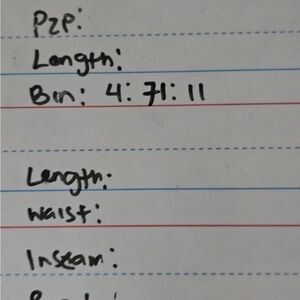 P2P:
Length:
Bin: 4: 71: 11
Length:
Waist:
Inseam: